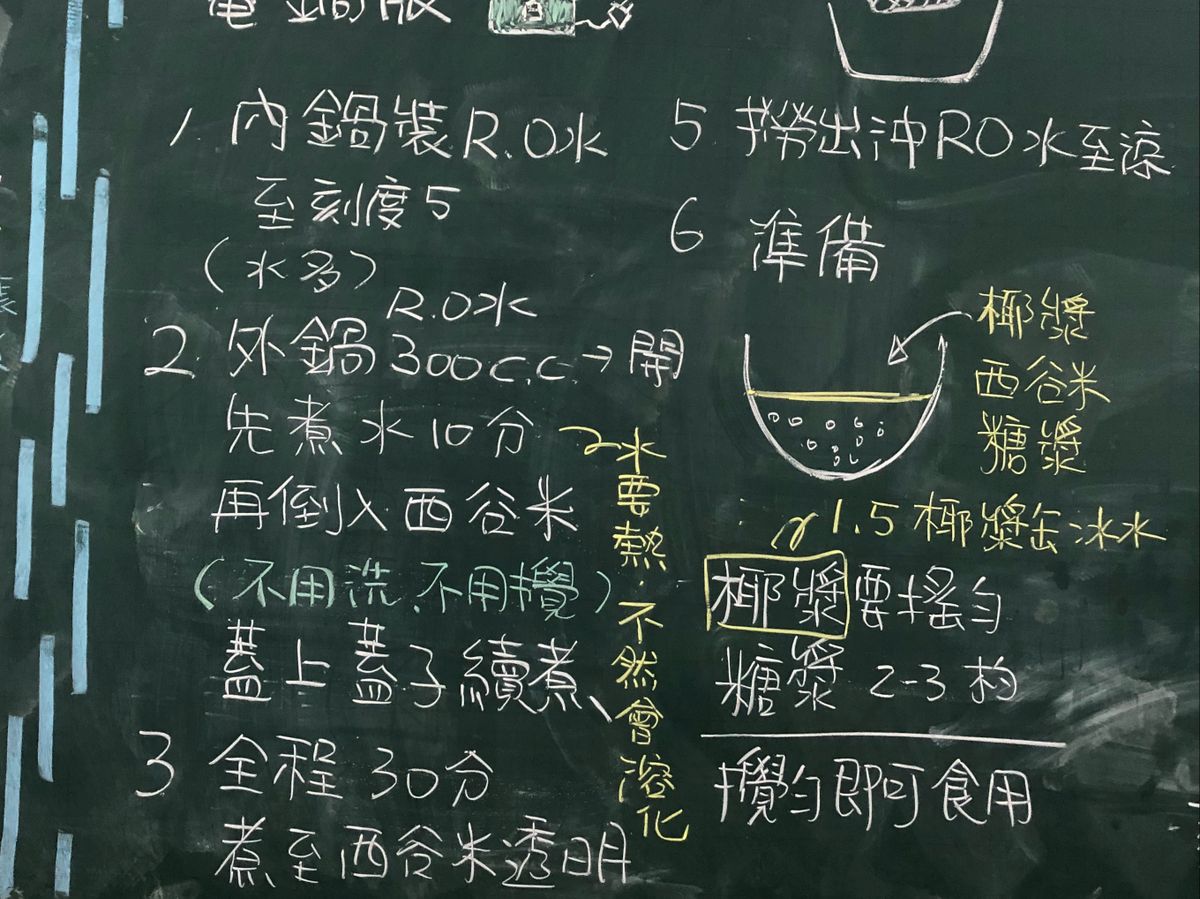 電鍋版
1. 內鍋裝R.O水
至刻度5
(水多)
R.O水
2. 外鍋300c.c.→開
先煮水10分
再倒入西谷米
(不用洗.不用攪)
蓋上蓋子續煮、
水要熱.不然會溶化
3 全程30分
煮至西谷米透明
5 撈出沖RO水至涼
6 準備
椰漿
西谷米
糖漿
1.5椰漿缶冰水
椰漿要搖勻
糖漿 2-3杓
攪勻即可食用